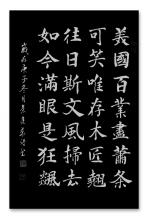 美國百業盡蕭條
可笑唯存木匠翹
往日斯文風掃去
如今滿眼是狂飆
歲次庚子冬月